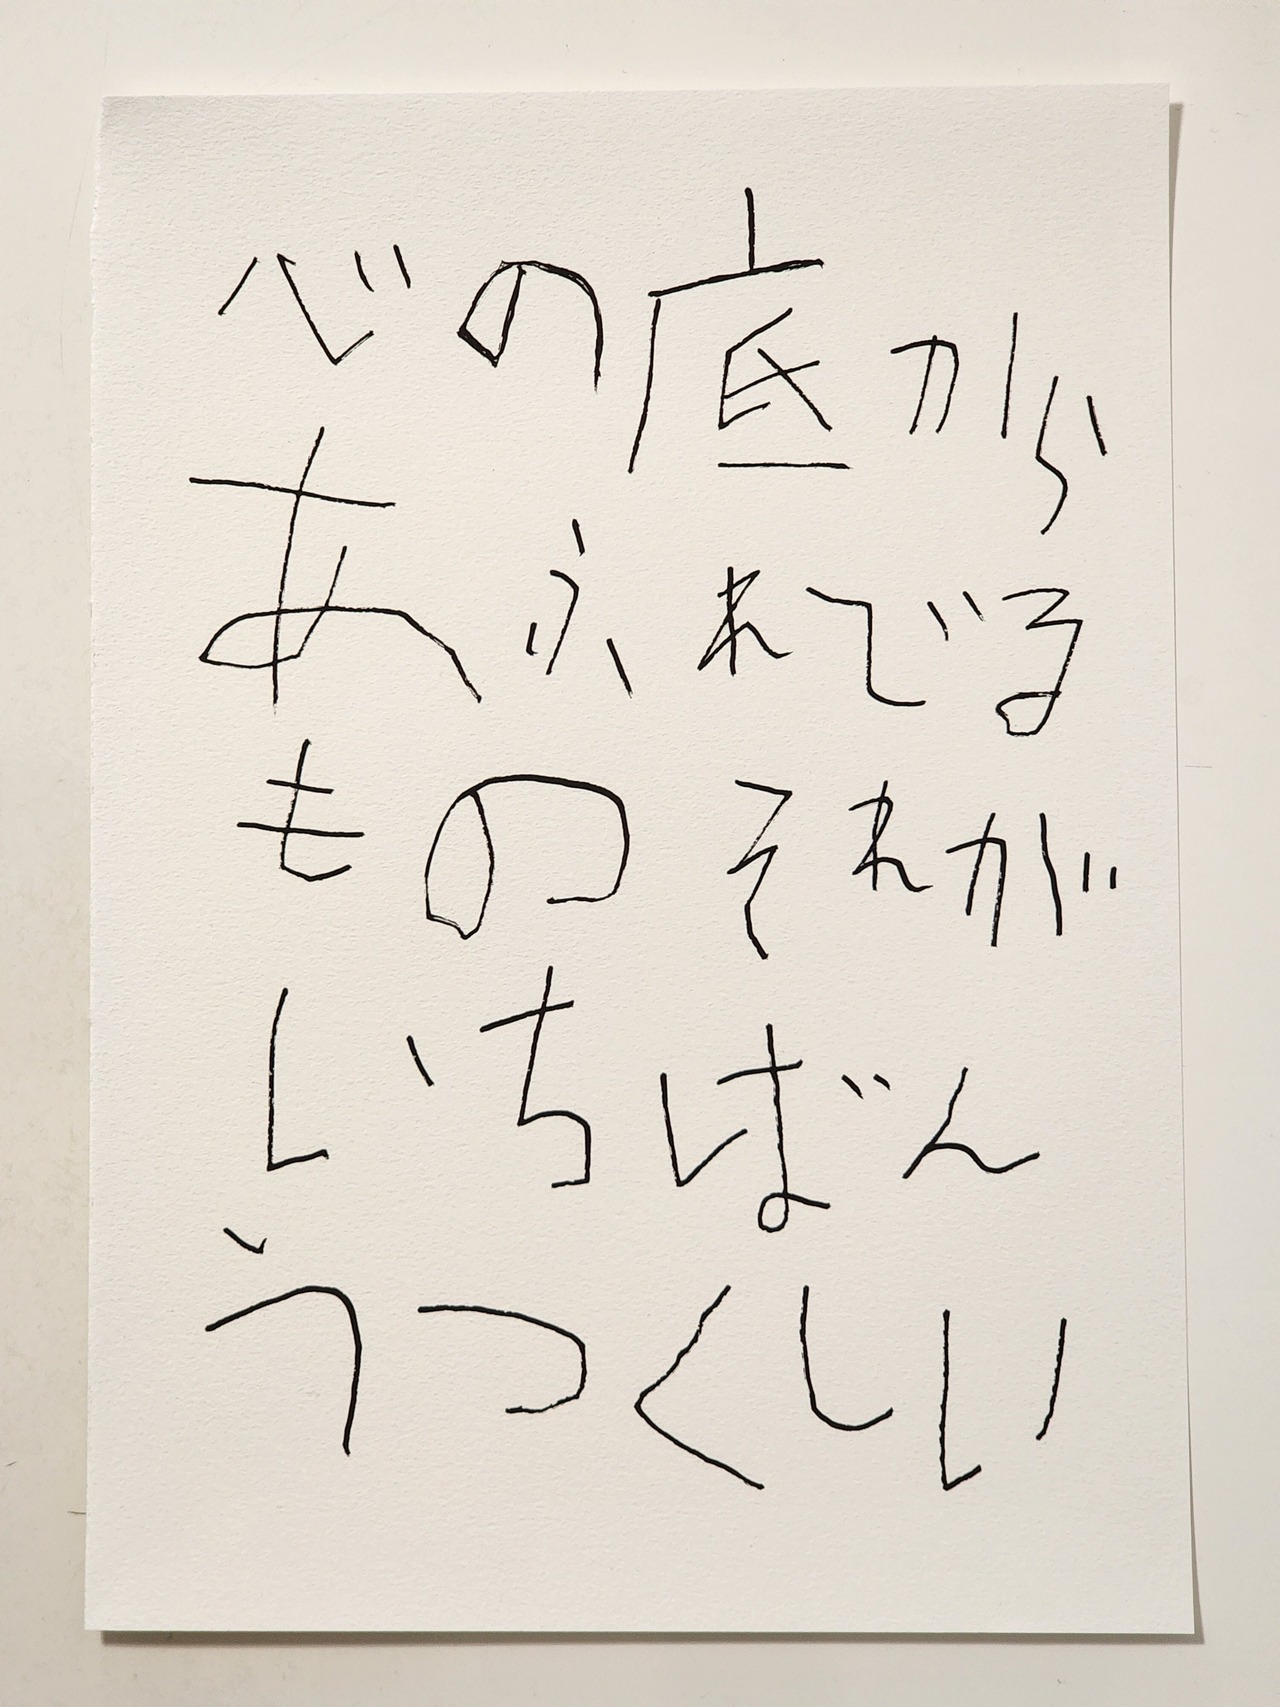 心の底から
あふれでる
ものそれが
いちばん
うつくしい